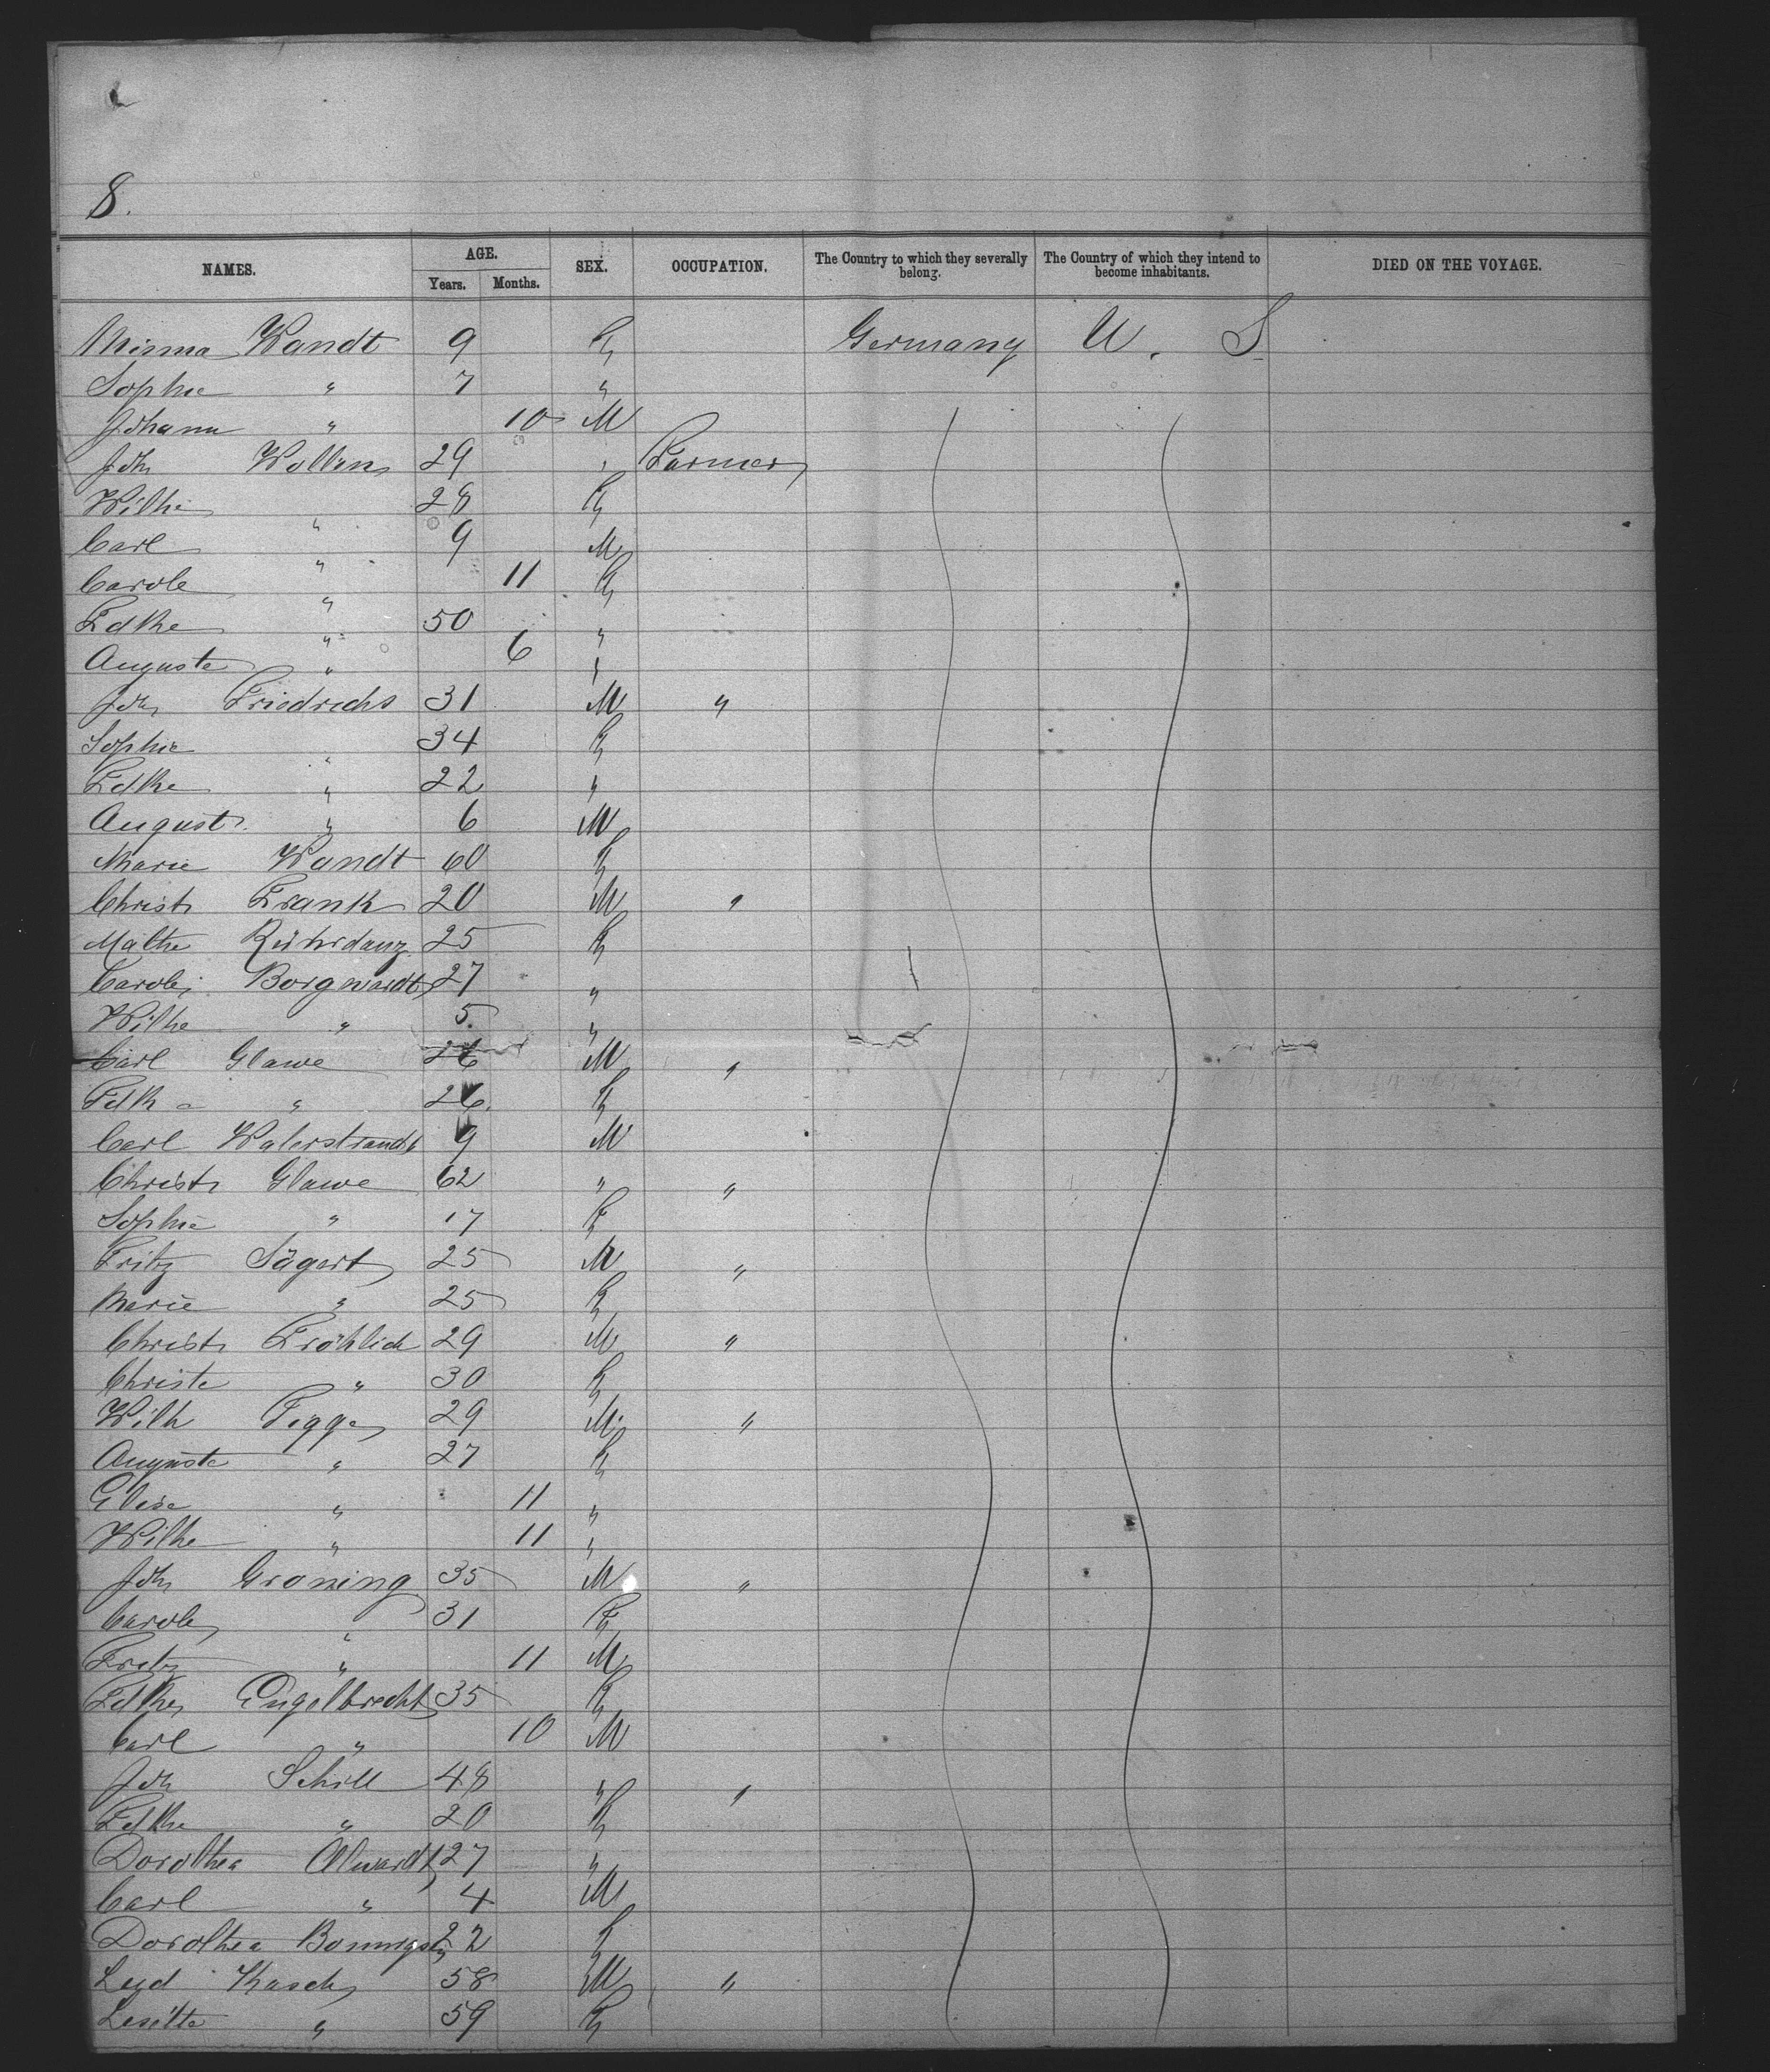 8.
NAMES. AGE. SEX. OCCUPATION. The Country to which they severally belong. The Country of which they intend to become inhabitants. DIED ON THE VOYAGE.
Years. Months.
Minna Wandt 9 F Germany U. S
Sophie " 7 "
Johann " 10 M
Joh Wollin 29 " Farmer
Wilhe " 28 F
Carl " 9 M
Carole " 11 F
Fdke " 50 "
Auguste " 6 "
Joh Friedrichs 31 M "
Sophie " 34 F
Fdke " 22 "
August " 6 M
Marie Wandt 60 F
Christ Frank 20 M "
Malthe Rührdanz 25 F
Carole Borgwardt 27 "
Wilhe " 5. "
Carl Glawe 26 M "
Fdke " 26. F
Carl Walerstrandt 9 M
Christ Glawe 62 " "
Sophie " 17 F
Fritz Sägert 25 M "
Marie " 25 F
Christ Fröhlich 29 M "
Christe " 30 F
Wilh Figge 29 M "
Auguste " 27 F
Elise " 11 "
Wilhe " 11 "
Joh Groning 35 M "
Carole " 31 F
Fritz " 11 M
Fdke Engelbrecht 35 F
Carl " 10 M
Joh Schill 48 " "
Fdke " 20 F
Dorothea Alwardt 27 "
Carl " 4 M
Dorothea 22 F
Lud Kasch 58 M "
Lisette " 59 F